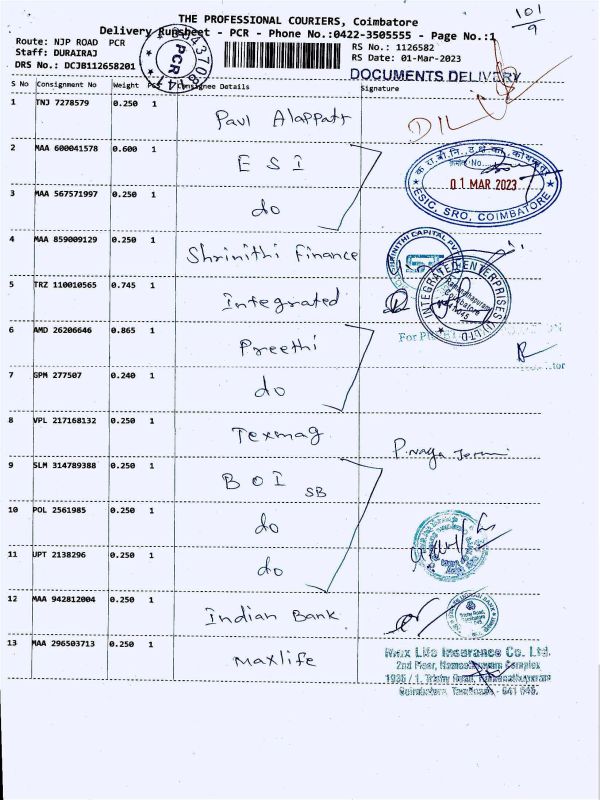 101
9
THE PROFESSIONAL COURIERS, Coimbatore
Delivery Runsheet - PCR - Phone No.:0422-3505555 - Page No.:1
Route: NJP ROAD PCR
RS No.: 1126582
Staff: DURAIRAJ
RS Date: 01-Mar-2023
DRS No.: DCJB112658201
PCR
DOCUMENTS DELIVERY
S No Consignment No Weight Pcs Consignee Details Signature
1 TNJ 7278579 0.250 1 Paul Alappatt
2 MAA 600041578 0.600 1 E S I
01 MAR 2023
ESIC, SRO, COIMBATORE
3 MAA 567571997 0.250 1 do
4 MAA 859009129 0.250 1 Shrinithi Finance
SHRINITHI CAPITAL PVT
5 TRZ 110010565 0.745 1 Integrated
INTEGRATED ENTERPRISES (I) LTD
Ramanathapuram
Coimbatore
641045
6 AMD 26206646 0.865 1 Preethi
7 GPM 277507 0.240 1 do
8 VPL 217168132 0.250 1 Texmag
9 SLM 314789388 0.250 1 B O I SB
10 POL 2561985 0.250 1 do
11 UPT 2138296 0.250 1 do
12 MAA 942812004 0.250 1 Indian Bank
13 MAA 296503713 0.250 1 Maxlife
Max Life Insurance Co. Ltd.
2nd Floor, Nameethapuram Complex
1936 / 1, Trichy Road, Ramanathapuram
Coimbatore, Tamilnadu - 641 045.